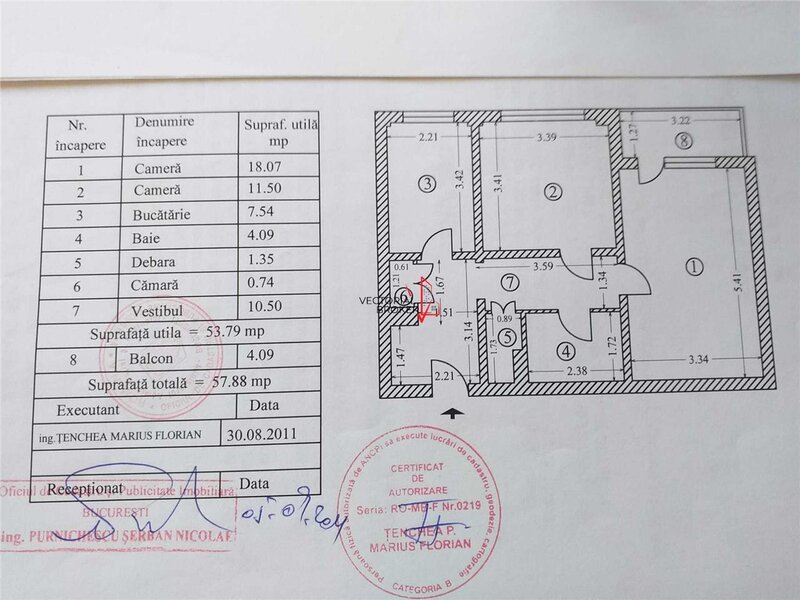 Nr. încapere Denumire încapere Supraf. utilă mp
1 Cameră 18.07
2 Cameră 11.50
3 Bucătărie 7.54
4 Baie 4.09
5 Debara 1.35
6 Cămară 0.74
7 Vestibul 10.50
Suprafață utila = 53.79 mp
8 Balcon 4.09
Suprafață totală = 57.88 mp
Executant Data
ing.ȚENCHEA MARIUS FLORIAN 30.08.2011
Recepționat Data
Oficiul de Cadastru și Publicitate Imobiliară
BUCUREȘTI
ing. PURNICHESCU ȘERBAN NICOLAE
2.21
3.42
3
3.39
3.41
2
3.22
1.27
8
1
5.41
3.34
0.61
1.21
6
1.67
1.51
3.14
1.47
2.21
7
3.59
1.34
0.89
5
1.73
4
1.72
2.38
VECTORIA
BROKER
Persoană fizică autorizată de ANCPI să execute lucrări de cadastru, geodezie, cartografie
CERTIFICAT
DE
AUTORIZARE
Seria: RO-MB-F Nr.0219
ȚENCHEA P.
MARIUS FLORIAN
CATEGORIA B